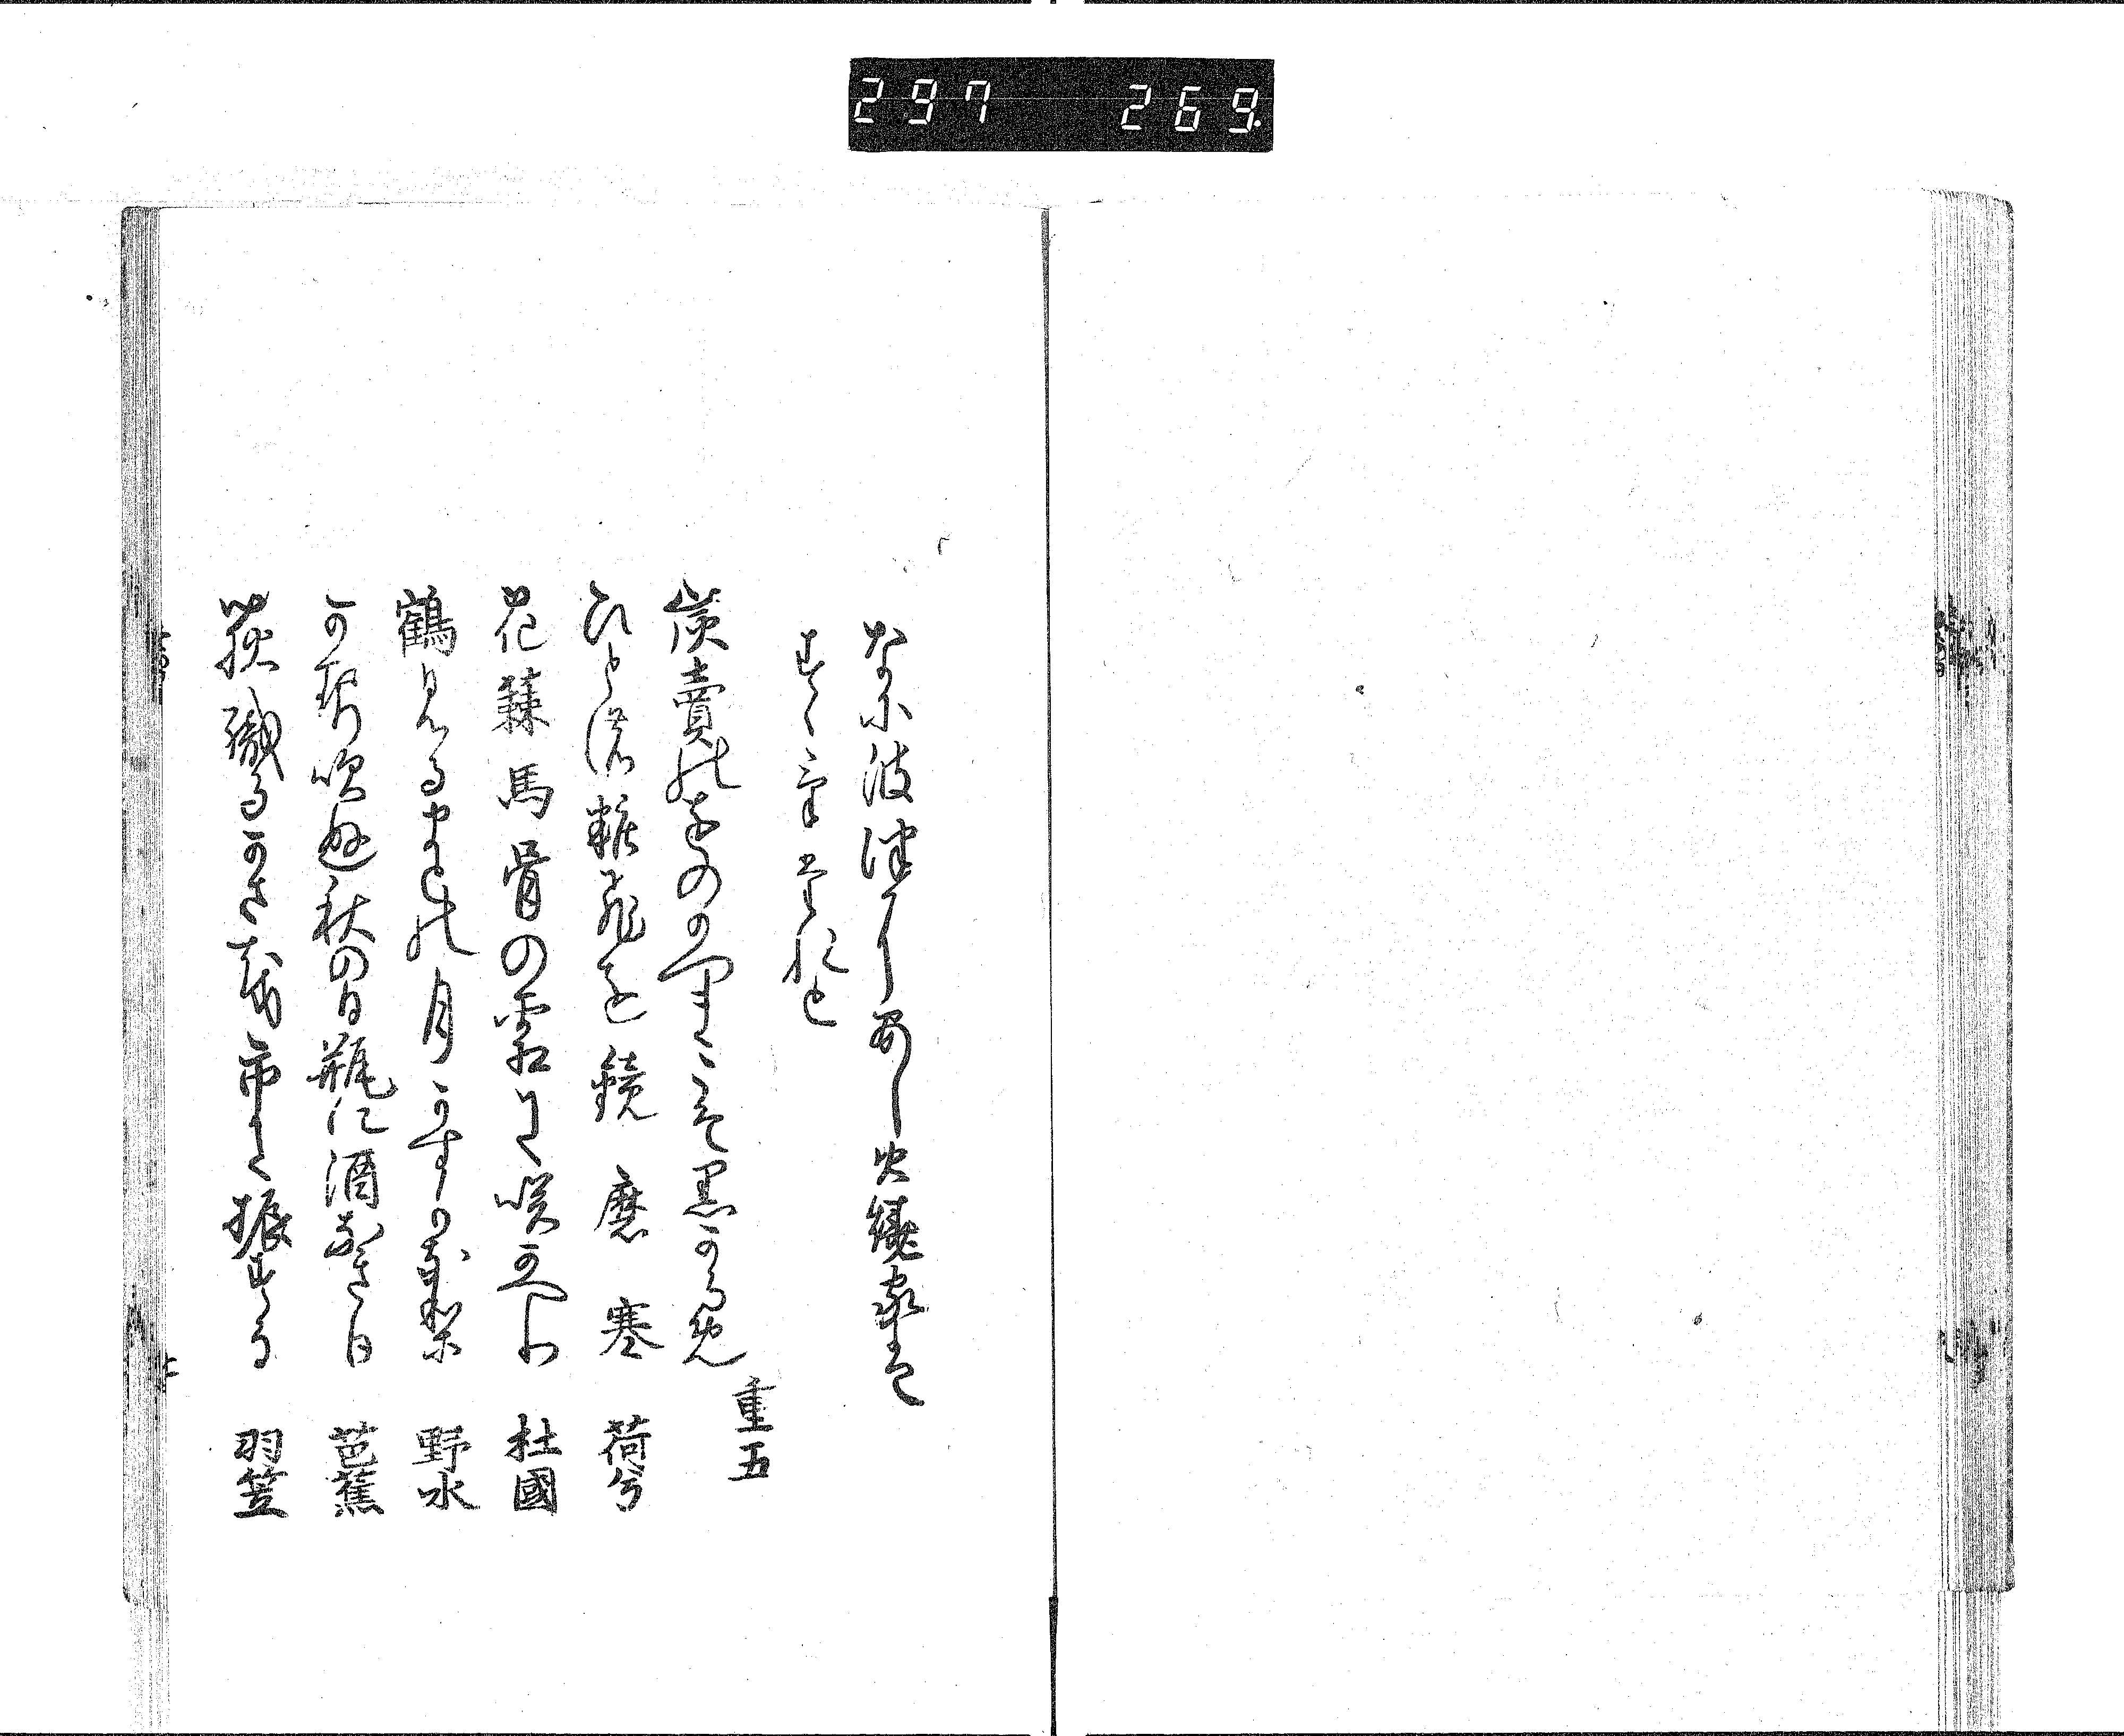 297 269
なに波津にあし火燒家は
すゝけたれと
炭賣のをのかつまこそ黒からめ
重五
ひとの粧ひを鏡磨寒
荷兮
花蕀馬骨の霜に咲かへり
杜國
鶴見るまとの月かすかなり
野水
かせ吹ぬ秋の日瓶に酒なき日
芭蕉
荻織るかさを市に振する
羽笠